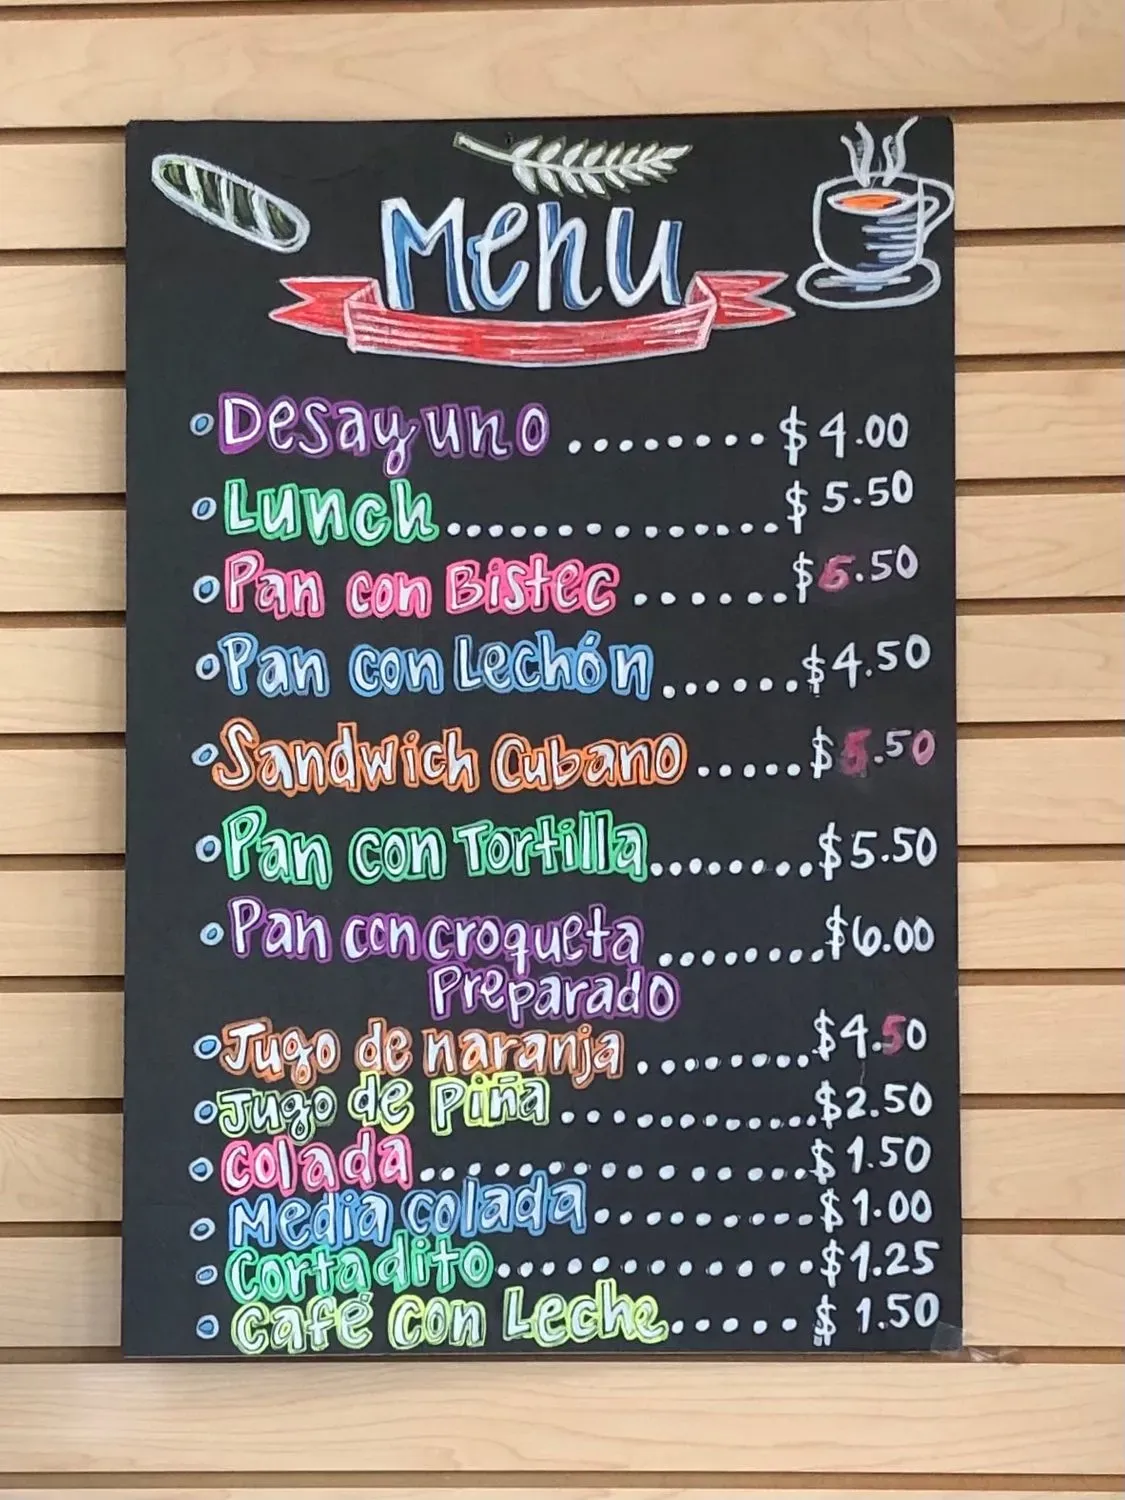 Menu
Desayuno ........ $4.00
Lunch .............. $5.50
Pan con Bistec ....... $5.50
Pan con Lechón ...... $4.50
Sandwich Cubano ..... $5.50
Pan con Tortilla ........ $5.50
Pan con croqueta ........ $6.00
Preparado
Jugo de naranja ........ $4.50
Jugo de Piña ........... $2.50
Colada ................ $1.50
Media colada ......... $1.00
Cortadito ............. $1.25
Café con Leche ...... $1.50